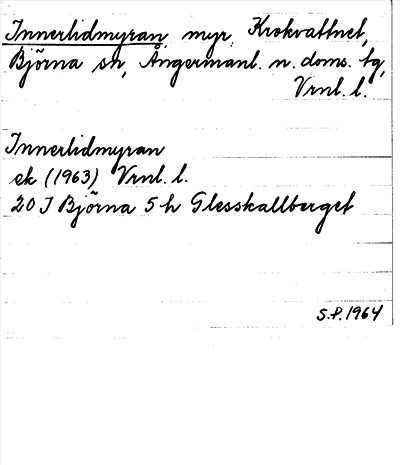 Innerlidmyran, myr, Krokvattnet,
Björna sn, Ångermanl. n. doms. tg,
Vrnl. l.
Innerlidmyran
ek (1963) Vrnl. l.
20 J Björna 5 h Glesskallberget
S.P. 1964